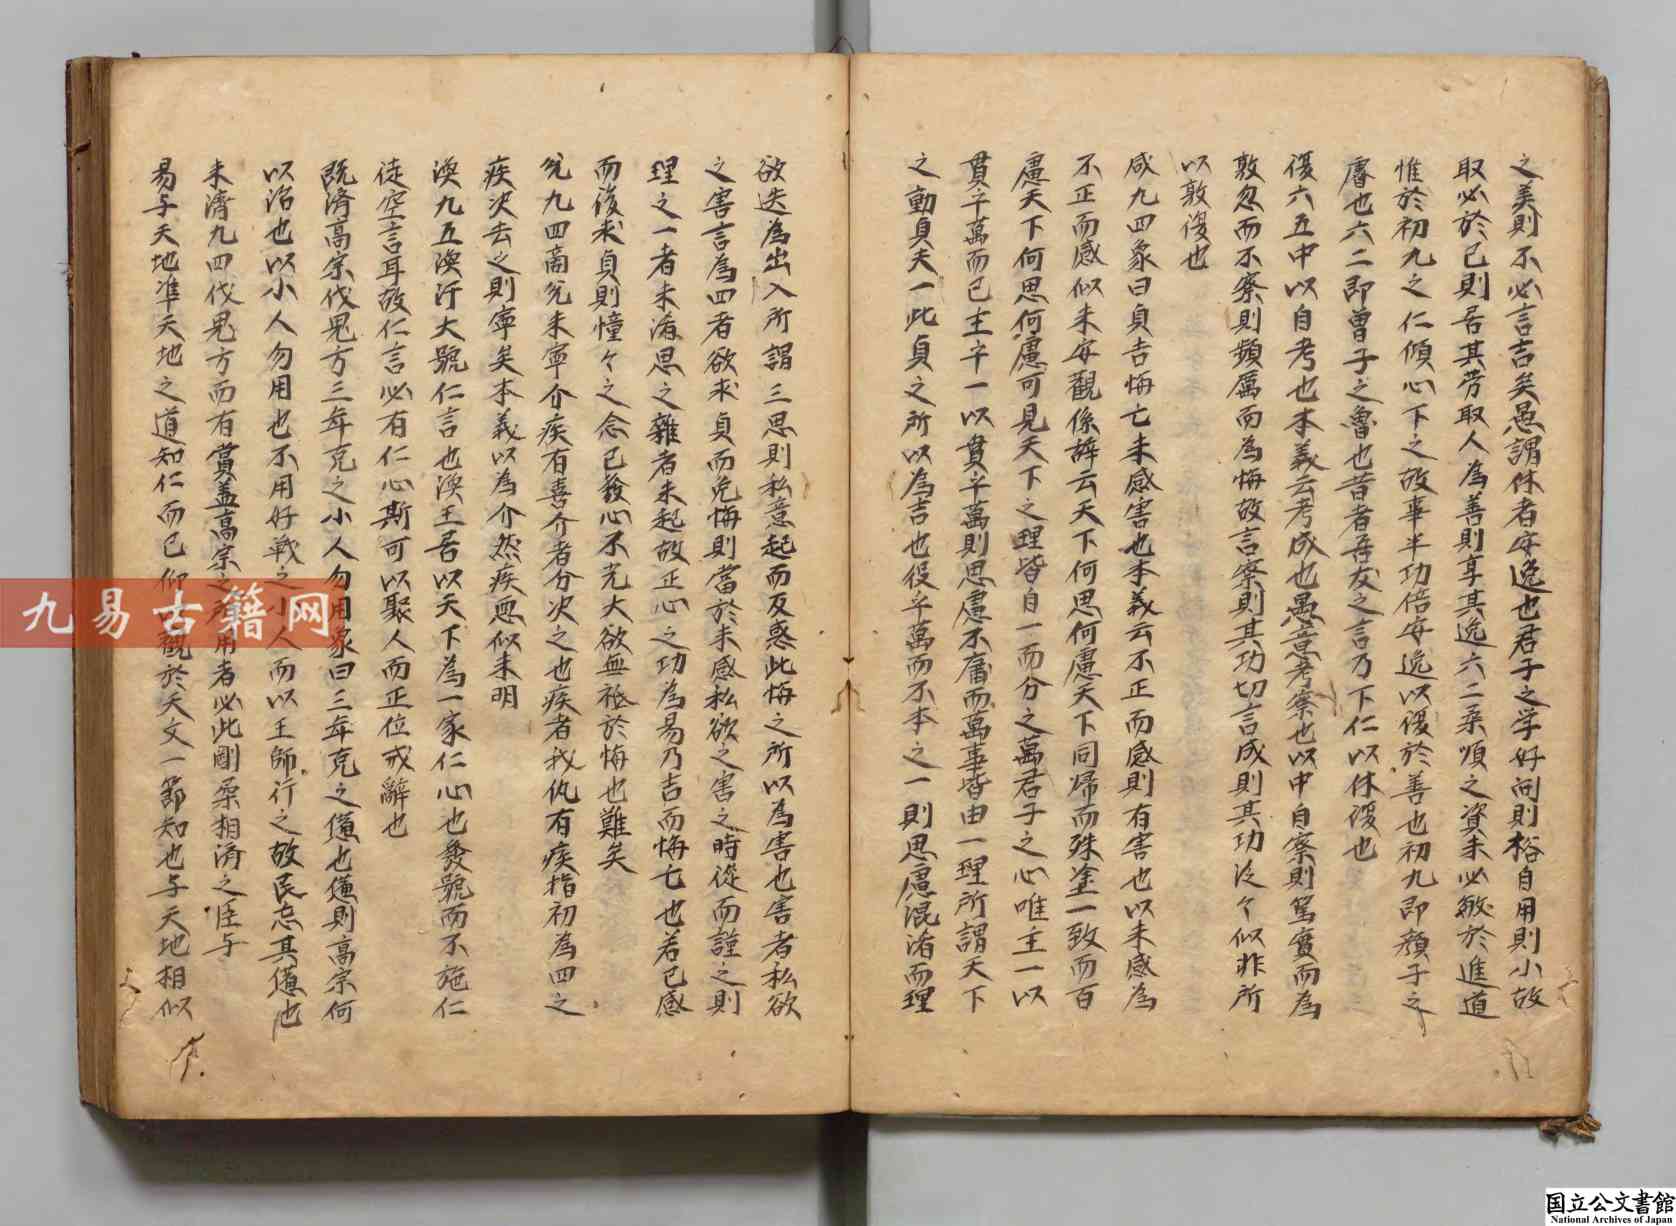 之美則不必言吉矣愚謂休者安逸也君子之学好问則裕自用則小故
取必於已則吾其劳取人為善則享其逸六二柔順之資未必敏於進道
惟於初九之仁傾心下之故事半功倍安逸以復於善也初九即顏子之
膚也六二即曾子之魯也昔者吾友之言乃下仁以休復也
復六五中以自考也本義云考成也愚意考察也以中自察則篤實而為
敦忽而不察則頻厲而為悔故言察則其功切言成則其功泛々似非所
以敦復也
咸九四象曰貞吉悔亡未感害也本義云不正而感則有害也以未感為
不正而感似未安觀係辞云天下何思何慮天下同帰而殊塗一致而百
慮天下何思何慮可見天下之理皆自一而分之萬君子之心唯主一以
貫乎萬而已主乎一以貫乎萬則思慮不雷而萬事皆由一理所謂天下
之動貞夫一此貞之所以為吉也役乎萬而不本之一則思慮混淆而理
欲迭為出入所謂三思則私意起而反惑此悔之所以為害也害者私欲
之害言為四者欲求貞而免悔則當於未感私欲之害之時從而謹之則
理之一者未淆思之雜者未起故正心之功為易乃吉而悔亡也若已感
而後求貞則憧々之念已發心不光大欲無祗於悔也難矣
兊九四商兊未寧介疾有喜介者分次之也疾者我仇有疾指初為四之
疾次去之則寧矣本義以為介然疾惡似未明
渙九五渙汗大號仁言也渙王居以天下為一家仁心也發號而不施仁
徒空言耳故仁言必有仁心斯可以聚人而正位戒辭也
既濟高宗伐鬼方三年克之小人勿用象曰三年克之憊也憊則高宗何
以治也以小人勿用也不用好戰之小人而以王師行之故民忘其憊也
未濟九四伐鬼方而有賞盖高宗之所用者必此剛柔相濟之臣与
易与天地準天地之道知仁而已仰以觀於天文一節知也与天地相似
九易古籍网
国立公文書館
National Archives of Japan